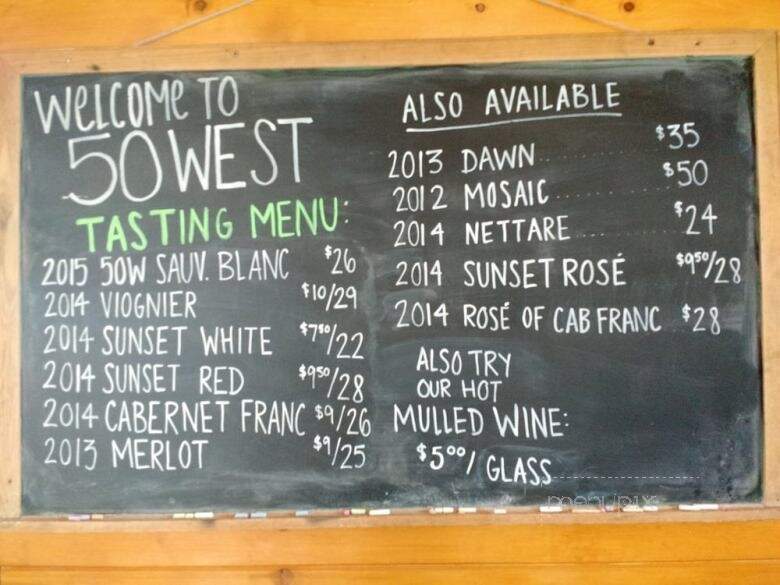 WELCOME TO
50 WEST
TASTING MENU:
2015 50W SAUV. BLANC $26
2014 VIOGNIER $10/29
2014 SUNSET WHITE $7⁵⁰/22
2014 SUNSET RED $9⁵⁰/28
2014 CABERNET FRANC $9/26
2013 MERLOT $9/25
ALSO AVAILABLE
2013 DAWN $35
2012 MOSAIC $50
2014 NETTARE $24
2014 SUNSET ROSÉ $9⁵⁰/28
2014 ROSÉ OF CAB FRANC $28
ALSO TRY
OUR HOT
MULLED WINE:
$5⁰⁰/ GLASS
menupix